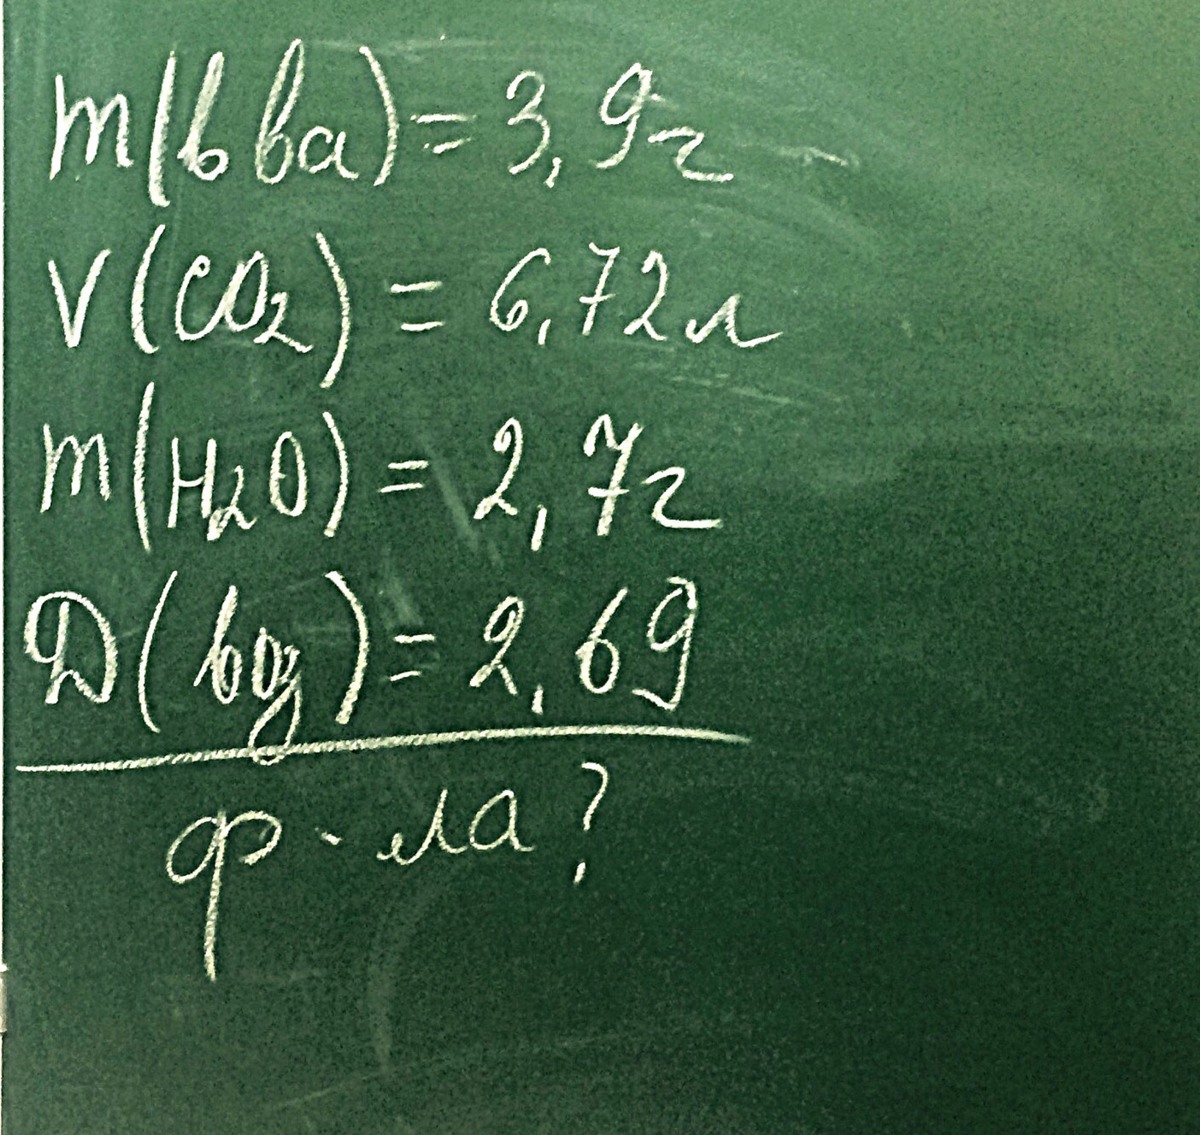 m(в ва) = 3,9г
V(CO₂) = 6,72л
m(H₂O) = 2,7г
D(воз) = 2,69
ф-ла?